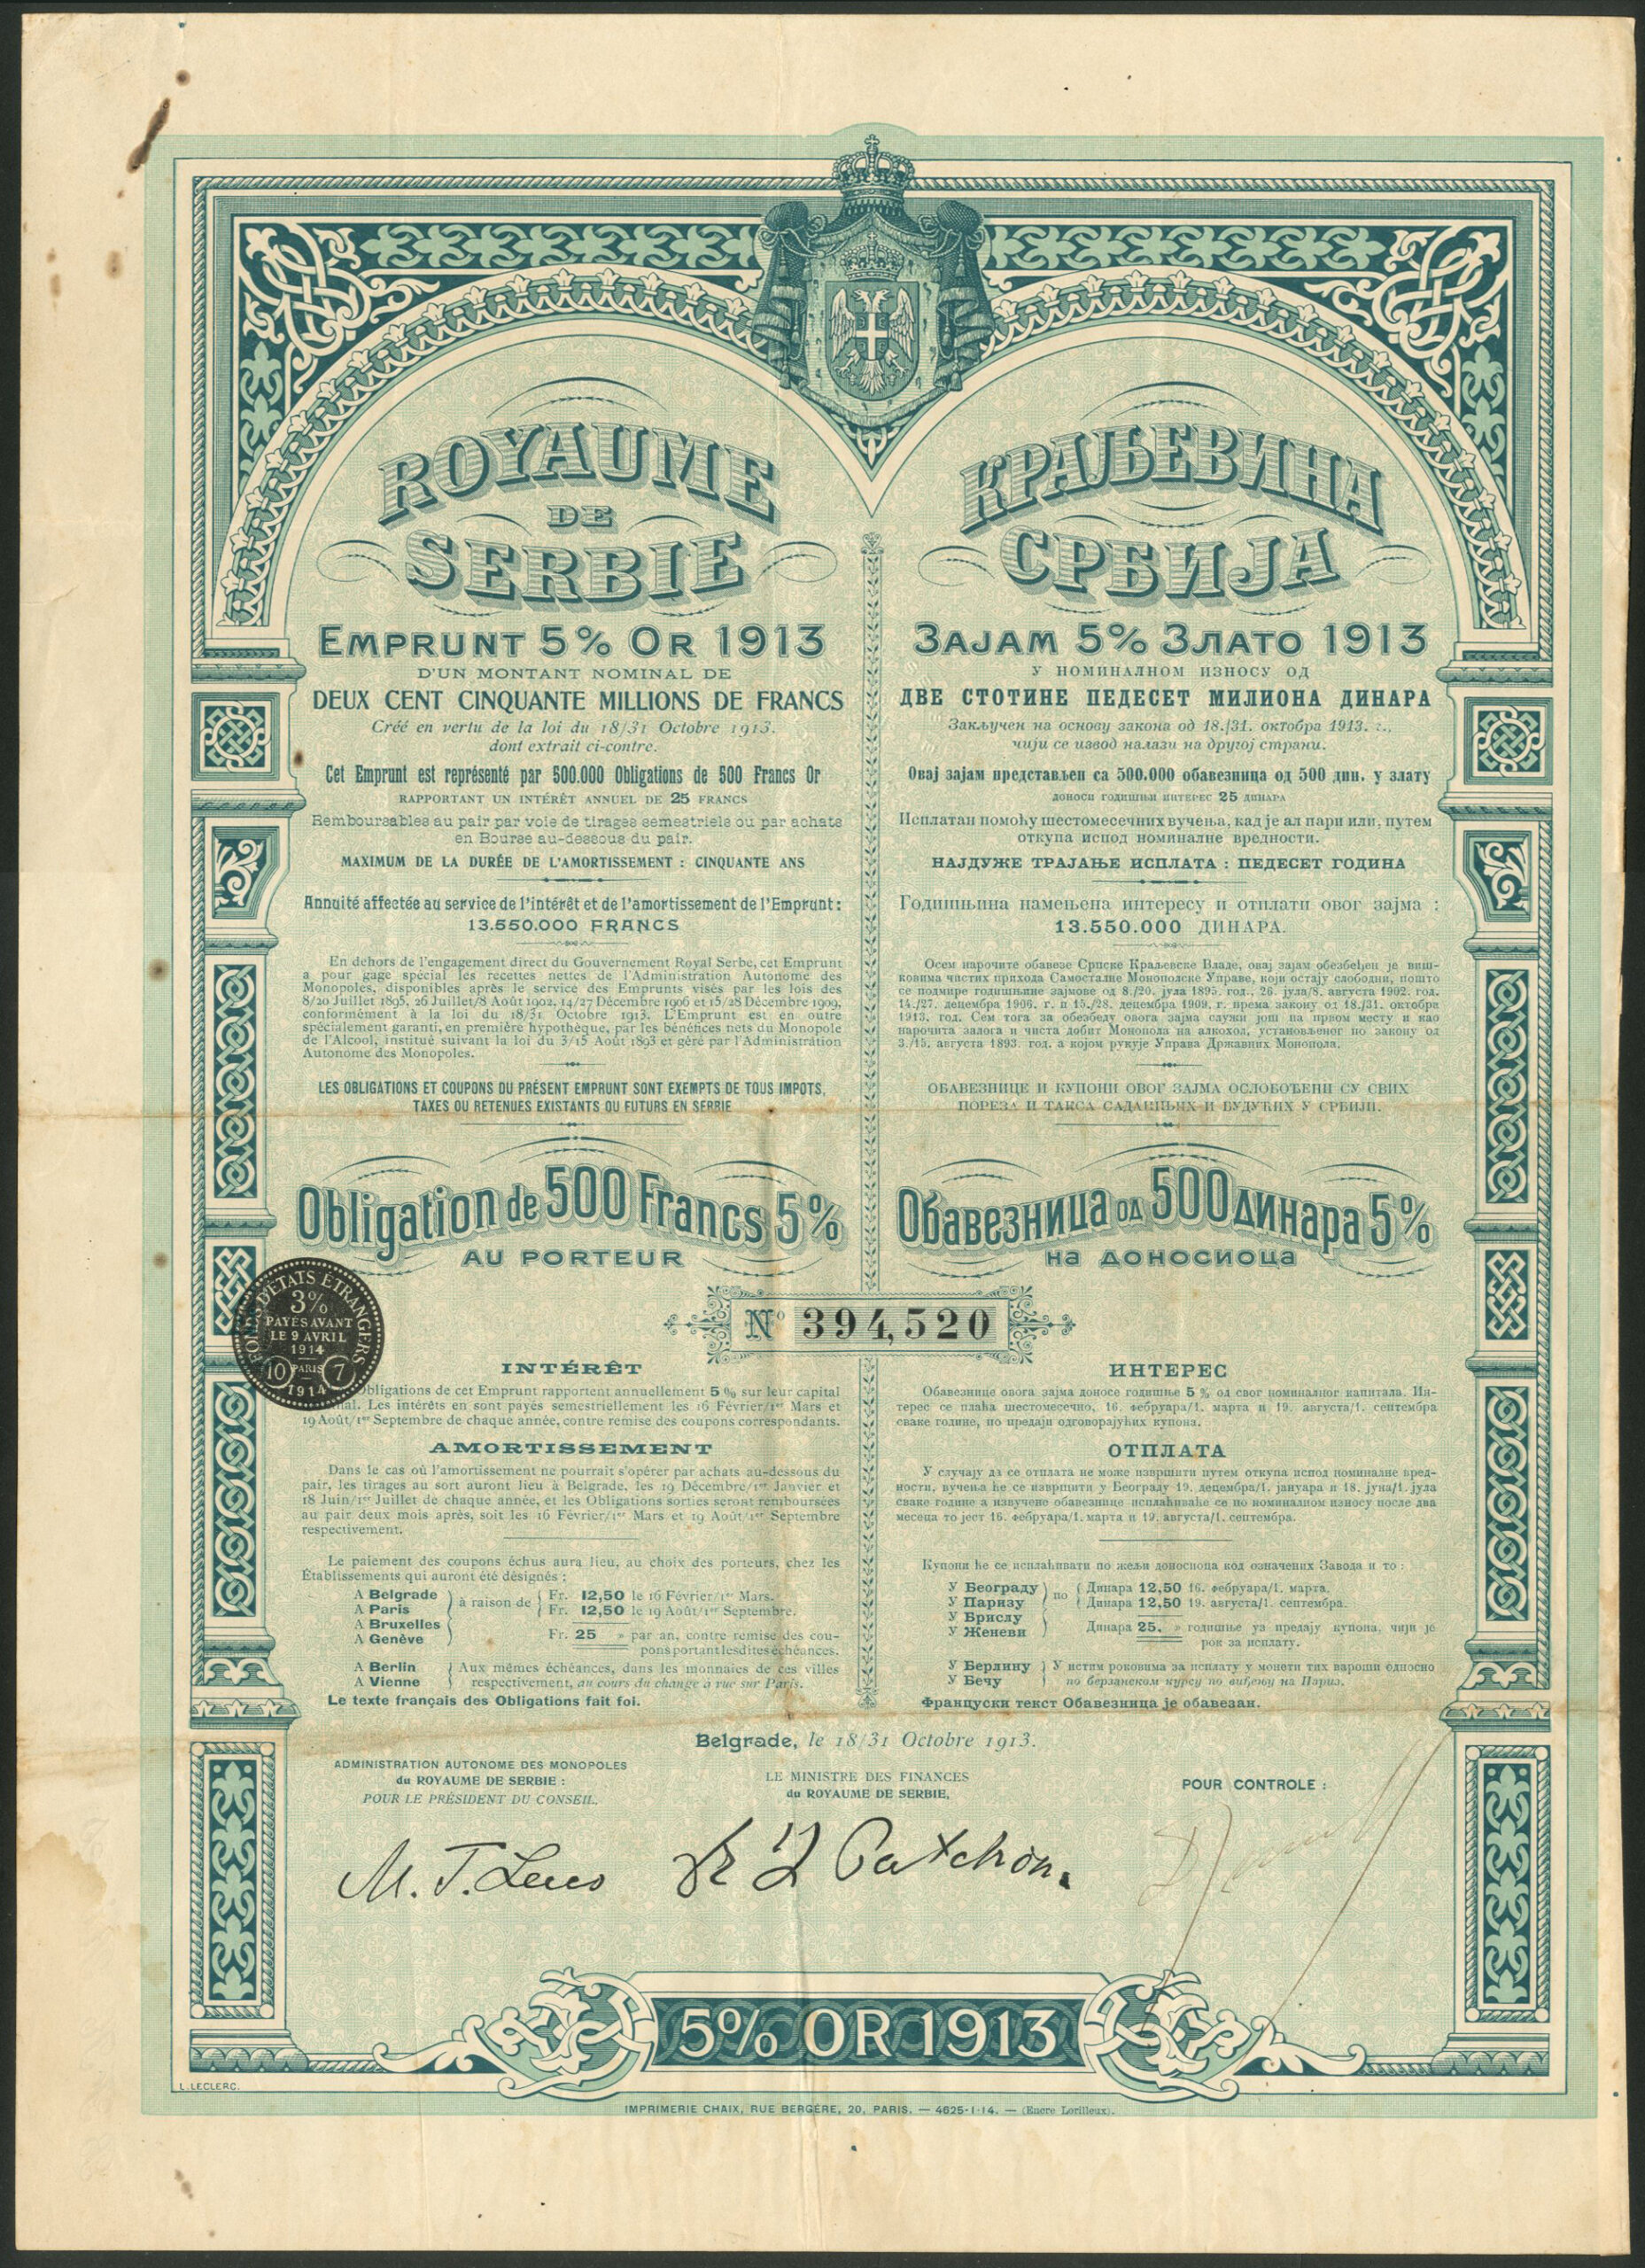 ROYAUME
DE
SERBIE
EMPRUNT 5% OR 1913
D'UN MONTANT NOMINAL DE
DEUX CENT CINQUANTE MILLIONS DE FRANCS
Créé en vertu de la loi du 18/31 Octobre 1913.
dont extrait ci-contre.
Cet Emprunt est représenté par 500.000 Obligations de 500 Francs Or
RAPPORTANT UN INTÉRÊT ANNUEL DE 25 FRANCS
Remboursables au pair par voie de tirages semestriels ou par achats
en Bourse au-dessous du pair.
MAXIMUM DE LA DURÉE DE L'AMORTISSEMENT : CINQUANTE ANS
Annuité affectée au service de l'intérêt et de l'amortissement de l'Emprunt :
13.550.000 FRANCS
En dehors de l'engagement direct du Gouvernement Royal Serbe, cet Emprunt
a pour gage spécial les recettes nettes de l'Administration Autonome des
Monopoles, disponibles après le service des Emprunts visés par les lois des
8/20 Juillet 1895, 26 Juillet/8 Août 1902, 14/27 Décembre 1906 et 15/28 Décembre 1909,
conformément à la loi du 18/31 Octobre 1913. L'Emprunt est en outre
spécialement garanti, en première hypothèque, par les bénéfices nets du Monopole
de l'Alcool, institué suivant la loi du 3/15 Août 1893 et géré par l'Administration
Autonome des Monopoles.
LES OBLIGATIONS ET COUPONS DU PRÉSENT EMPRUNT SONT EXEMPTS DE TOUS IMPOTS,
TAXES OU RETENUES EXISTANTS OU FUTURS EN SERBIE
Obligation de 500 Francs 5%
AU PORTEUR
КРАЉЕВИНА
СРБИЈА
ЗАЈАМ 5% ЗЛАТО 1913
У НОМИНАЛНОМ ИЗНОСУ ОД
ДВЕ СТОТИНЕ ПЕДЕСЕТ МИЛИОНА ДИНАРА
Закључен на основу закона од 18./31. октобра 1913. г.,
чији се извод налази на другој страни.
Овај зајам представљен са 500.000 обавезница од 500 дин. у злату
ДОНОСИ ГОДИШЊИ ИНТЕРЕС 25 ДИНАРА
Исплатан помоћу шестомесечних вучења, кад је ал пари или, путем
откупа испод номиналне вредности.
НАЈДУЖЕ ТРАЈАЊЕ ИСПЛАТА : ПЕДЕСЕТ ГОДИНА
Годишњина намењена интересу и отплати овог зајма :
13.550.000 ДИНАРА.
Осем нарочите обавезе Српске Краљевске Владе, овај зајам обезбеђен је виш-
ковима чистих прихода Самосталне Монополске Управе, који остају слободни, пошто
се подмире годишњине зајмове од 8./20. јула 1895. год., 26. јула/8. августа 1902. год.
14./27. децембра 1906. г. и 15./28. децембра 1909. г. према закону од 18./31. октобра
1913. год. Сем тога за обезбеду овога зајма служи још на првом месту и као
нарочита залога и чиста добит Монопола на алкохол, установљеног по закону од
3./15. августа 1893. год. а којом рукује Управа Државних Монопола.
ОБАВЕЗНИЦЕ И КУПОНИ ОВОГ ЗАЈМА ОСЛОБОЂЕНИ СУ СВИХ
ПОРЕЗА И ТАКСА САДАШЊИХ И БУДУЋИХ У СРБИЈИ.
Обавезница од 500 динара 5%
НА ДОНОСИОЦА
FONDS D'ÉTATS ÉTRANGERS
3%
PAYÉS AVANT
LE 9 AVRIL
1914
10 PARIS 7
1914
No 394,520
INTÉRÊT
Obligations de cet Emprunt rapportent annuellement 5 % sur leur capital
nal. Les intérêts en sont payés semestriellement les 16 Février/1er Mars et
19 Août/1er Septembre de chaque année, contre remise des coupons correspondants.
AMORTISSEMENT
Dans le cas où l'amortissement ne pourrait s'opérer par achats au-dessous du
pair, les tirages au sort auront lieu à Belgrade, les 19 Décembre/1er Janvier et
18 Juin/1er Juillet de chaque année, et les Obligations sorties seront remboursées
au pair deux mois après, soit les 16 Février/1er Mars et 19 Août/1er Septembre
respectivement.
Le paiement des coupons échus aura lieu, au choix des porteurs, chez les
Établissements qui auront été désignés :
A Belgrade
A Paris
A Bruxelles
A Genève
à raison de
Fr. 12,50 le 16 Février/1er Mars.
Fr. 12,50 le 19 Août/1er Septembre.
Fr. 25 » par an, contre remise des cou-
pons portant lesdites échéances.
A Berlin
A Vienne
Aux mêmes échéances, dans les monnaies de ces villes
respectivement, au cours du change à vue sur Paris.
Le texte français des Obligations fait foi.
ИНТЕРЕС
Обавезнице овога зајма доносе годишње 5 % од свог номиналног капитала. Ин-
терес се плаћа шестомесечно, 16. фебруара/1. марта и 19. августа/1. септембра
сваке године, по предаји одговорајућих купона.
ОТПЛАТА
У случају да се отплата не може извршити путем откупа испод номиналне вред-
ности, вучења ће се извршити у Београду 19. децембра/1. јануара и 18. јуна/1. јула
сваке године а извучене обавезнице исплаћиваће се по номиналном износу после два
месеца то јест 16. фебруара/1. марта и 19. августа/1. септембра.
Купони ће се исплаћивати по жељи доносиоца код означених Завода и то :
У Београду
У Паризу
У Брислу
У Женеви
по
Динара 12,50 16. фебруара/1. марта.
Динара 12,50 19. августа/1. септембра.
Динара 25. » годишње уз предају купона, чији је
рок за исплату.
У Берлину
У Бечу
У истим роковима за исплату у монети тих вароши односно
по берзанском курсу по виђењу на Париз.
Француски текст Обавезница је обавезан.
Belgrade, le 18/31 Octobre 1913.
ADMINISTRATION AUTONOME DES MONOPOLES
du ROYAUME DE SERBIE :
POUR LE PRÉSIDENT DU CONSEIL,
LE MINISTRE DES FINANCES
du ROYAUME DE SERBIE,
POUR CONTROLE :
5% OR 1913
L. LECLERC.
IMPRIMERIE CHAIX, RUE BERGÈRE, 20, PARIS. — 4625-1-14. — (Encre Lorilleux).